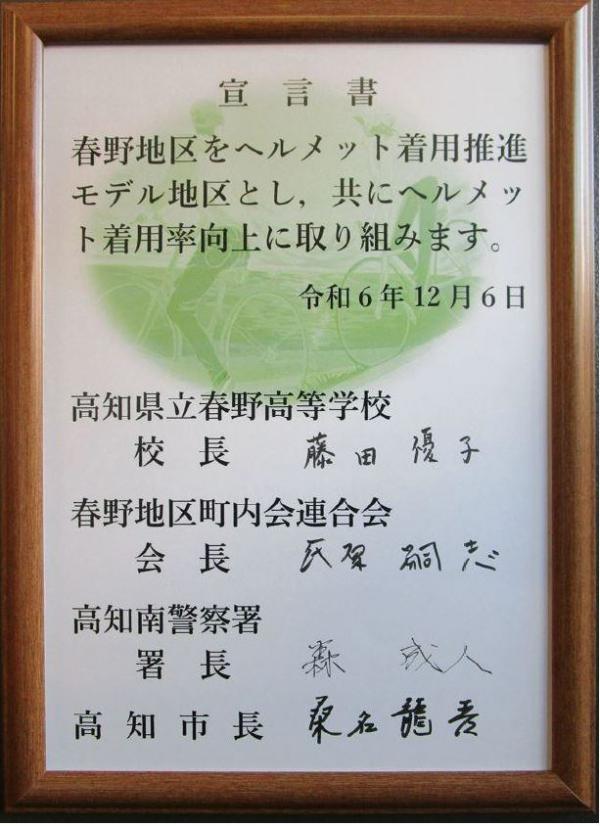 宣言書
春野地区をヘルメット着用推進
モデル地区とし，共にヘルメッ
ト着用率向上に取り組みます。
令和6年12月6日
高知県立春野高等学校
校長 藤田 優子
春野地区町内会連合会
会長 嗣志
高知南警察署
署長 森 成人
高知市長 桑名龍吾